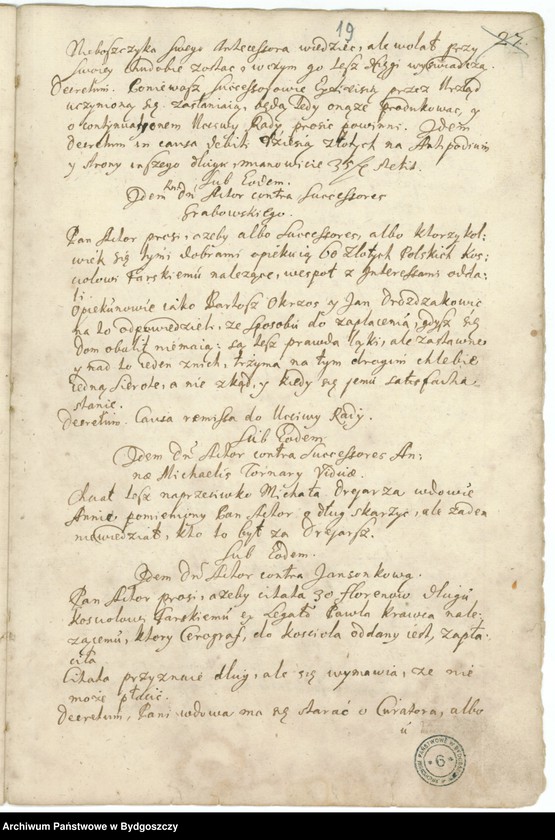 19
27.
Nieboszczyka swego Antecessora wiedziec, ale wolał przy
swoiey chudobie zostac, wczym go tesz Xięgi wyswiadczą.
Decretum. Poniewasz Successorowie Exdivisią przez Urząd
uczynioną się zasłaniaią, będą tedy onąsz produkować, y
o continuationem Ucciwey Rady prosic powinni. Idem
decretum in causa debiti dziesią złotych na Antipedium
y strony inszego długu, mianowicie 35
Sub Eodem.
Idem Dn Actor contra Successores
Grabowskiego.
Pan Actor prosi, azeby albo Successores, albo ktorzykol:
wiek się tymi dobrami opiekuią 60 złotych Polskich Kos:
ciołowi Farskiemu nalezące, wespoł z Interessami odda:
li.
Opiekunowie iako Bartosz Okrzos y Jan Drozdzakowic
na to odpowiedzieli, ze sposobu do zapłacenia, gdysz się
dom obalił niemaią: są tesz prawda łąki, ale zastawne
y nad to ieden znich, trzyma na tym drogim chlebie
iedną sierotę, a nie zkąd, y kiedy się jemu satisfactia
stanie.
Decretum. Causa remissa do Ucciwy Rady.
Sub Eodem
Idem Dn Actor contra Successores An:
næ Michaelis Tornary Viduæ.
Chciał tesz naprzeciwko Michała Dreiarza wdowie
Annie, pomieniony Pan Actor o dług skarzyc, ale zaden
niewiedział, kto to był za Dreiarsz.
Sub Eodem.
Idem Dn Actor contra Jansonkową.
Pan Actor prosi, azeby citata 30 florenow długu
Kosciołowi Farskiemu ex Legato Pawła Krawca nale:
zącemu, ktory Cerograf, do Kościoła oddany iest, zapła:
ciła
Citata przyznaie dług, ale się wymawia, ze nie
może płacic.
Decretum, Pani wdowa ma się starać o Curatora, albo
u
ARCHIWUM PAŃSTWOWE W BYDGOSZCZY
6
Archiwum Państwowe w Bydgoszczy